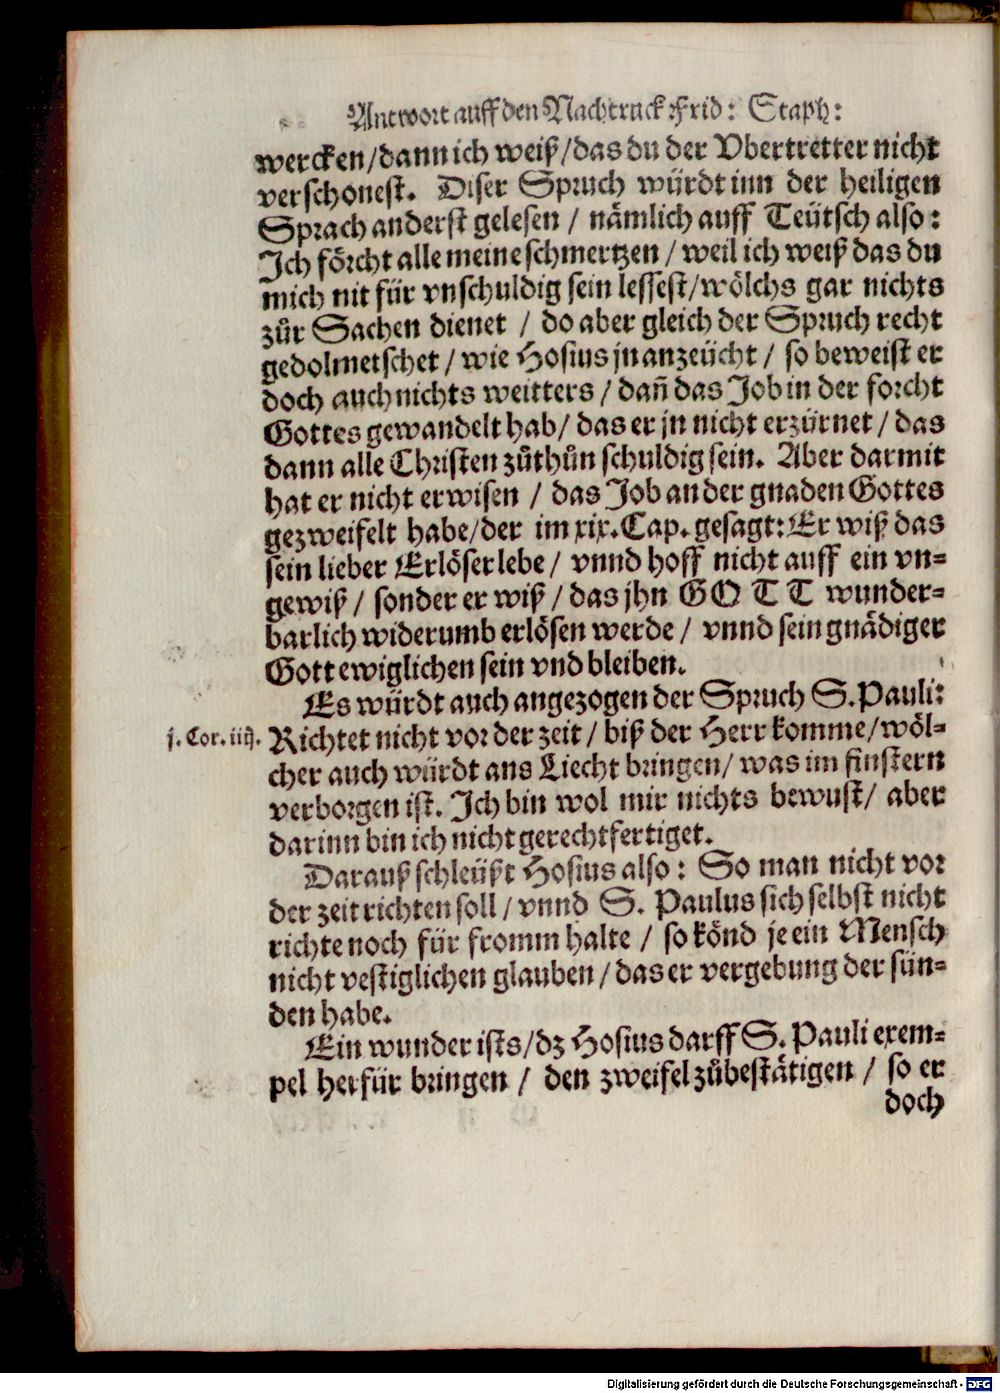 Antwort auff den Nachtruck Frid: Staph:
wercken/dann ich weiß/das du der Vbertretter nicht
verschonest. Diser Spruch würdt inn der heiligen
Sprach anderst gelesen / nämlich auff Teütsch also:
Ich förcht alle meine schmertzen / weil ich weiß das du
mich nit für vnschuldig sein lessest/wölchs gar nichts
zůr Sachen dienet / do aber gleich der Spruch recht
gedolmetschet / wie Hosius jn anzeücht / so beweist er
doch auch nichts weitters / dañ das Job in der forcht
Gottes gewandelt hab/ das er jn nicht erzürnet / das
dann alle Christen zůthůn schuldig sein. Aber darmit
hat er nicht erwisen / das Job an der gnaden Gottes
gezweifelt habe/der im xix. Cap. gesagt: Er wiß das
sein lieber Erlöser lebe / vnnd hoff nicht auff ein vn-
gewiß / sonder er wiß / das jhn GOTT wunder-
barlich widerumb erlösen werde / vnnd sein gnädiger
Gott ewiglichen sein vnd bleiben.
Es würdt auch angezogen der Spruch S. Pauli:
j. Cor. iiij. Richtet nicht vor der zeit / biß der Herr komme/wöl-
cher auch würdt ans Liecht bringen/ was im finstern
verborgen ist. Ich bin wol mir nichts bewust/ aber
darinn bin ich nicht gerechtfertiget.
Darauß schleüßt Hosius also: So man nicht vor
der zeit richten soll / vnnd S. Paulus sich selbst nicht
richte noch für fromm halte / so könd je ein Mensch
nicht vestiglichen glauben / das er vergebung der sün-
den habe.
Ein wunder ists/dz Hosius darff S. Pauli exem-
pel herfür bringen / den zweifel zůbestätigen / so er
doch
Digitalisierung gefördert durch die Deutsche Forschungsgemeinschaft - DFG